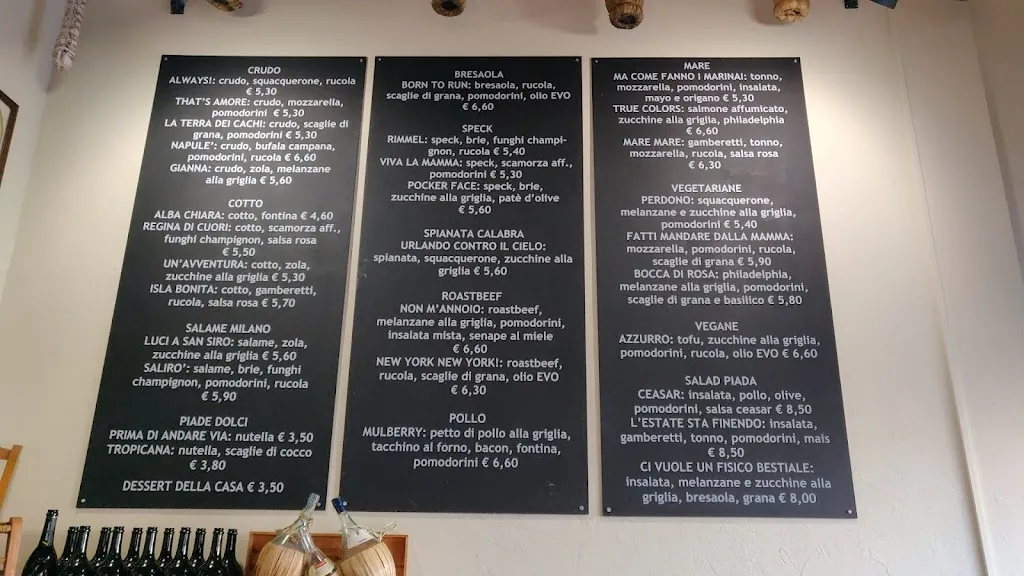 CRUDO
ALWAYS!: crudo, squacquerone, rucola
€ 5,30
THAT'S AMORE: crudo, mozzarella,
pomodorini € 5,30
LA TERRA DEI CACHI: crudo, scaglie di
grana, pomodorini € 5,30
NAPULE': crudo, bufala campana,
pomodorini, rucola € 6,60
GIANNA: crudo, zola, melanzane
alla griglia € 5,60
COTTO
ALBA CHIARA: cotto, fontina € 4,60
REGINA DI CUORI: cotto, scamorza aff.,
funghi champignon, salsa rosa
€ 5,50
UN'AVVENTURA: cotto, zola,
zucchine alla griglia € 5,30
ISLA BONITA: cotto, gamberetti,
rucola, salsa rosa € 5,70
SALAME MILANO
LUCI A SAN SIRO: salame, zola,
zucchine alla griglia € 5,60
SALIRO': salame, brie, funghi
champignon, pomodorini, rucola
€ 5,90
PIADE DOLCI
PRIMA DI ANDARE VIA: nutella € 3,50
TROPICANA: nutella, scaglie di cocco
€ 3,80
DESSERT DELLA CASA € 3,50
BRESAOLA
BORN TO RUN: bresaola, rucola,
scaglie di grana, pomodorini, olio EVO
€ 6,60
SPECK
RIMMEL: speck, brie, funghi champi-
gnon, rucola € 5,40
VIVA LA MAMMA: speck, scamorza aff.,
pomodorini € 5,30
POCKER FACE: speck, brie,
zucchine alla griglia, patè d'olive
€ 5,60
SPIANATA CALABRA
URLANDO CONTRO IL CIELO:
spianata, squacquerone, zucchine alla
griglia € 5,60
ROASTBEEF
NON M'ANNOIO: roastbeef,
melanzane alla griglia, pomodorini,
insalata mista, senape al miele
€ 6,60
NEW YORK NEW YORK!: roastbeef,
rucola, scaglie di grana, olio EVO
€ 6,30
POLLO
MULBERRY: petto di pollo alla griglia,
tacchino al forno, bacon, fontina,
pomodorini € 6,60
MARE
MA COME FANNO I MARINAI: tonno,
mozzarella, pomodorini, insalata,
mayo e origano € 5,30
TRUE COLORS: salmone affumicato,
zucchine alla griglia, philadelphia
€ 6,60
MARE MARE: gamberetti, tonno,
mozzarella, rucola, salsa rosa
€ 6,30
VEGETARIANE
PERDONO: squacquerone,
melanzane e zucchine alla griglia,
pomodorini € 5,40
FATTI MANDARE DALLA MAMMA:
mozzarella, pomodorini, rucola,
scaglie di grana € 5,90
BOCCA DI ROSA: philadelphia,
melanzane alla griglia, pomodorini,
scaglie di grana e basilico € 5,80
VEGANE
AZZURRO: tofu, zucchine alla griglia,
pomodorini, rucola, olio EVO € 6,60
SALAD PIADA
CEASAR: insalata, pollo, olive,
pomodorini, salsa ceasar € 8,50
L'ESTATE STA FINENDO: insalata,
gamberetti, tonno, pomodorini, mais
€ 8,50
CI VUOLE UN FISICO BESTIALE:
insalata, melanzane e zucchine alla
griglia, bresaola, grana € 8,00